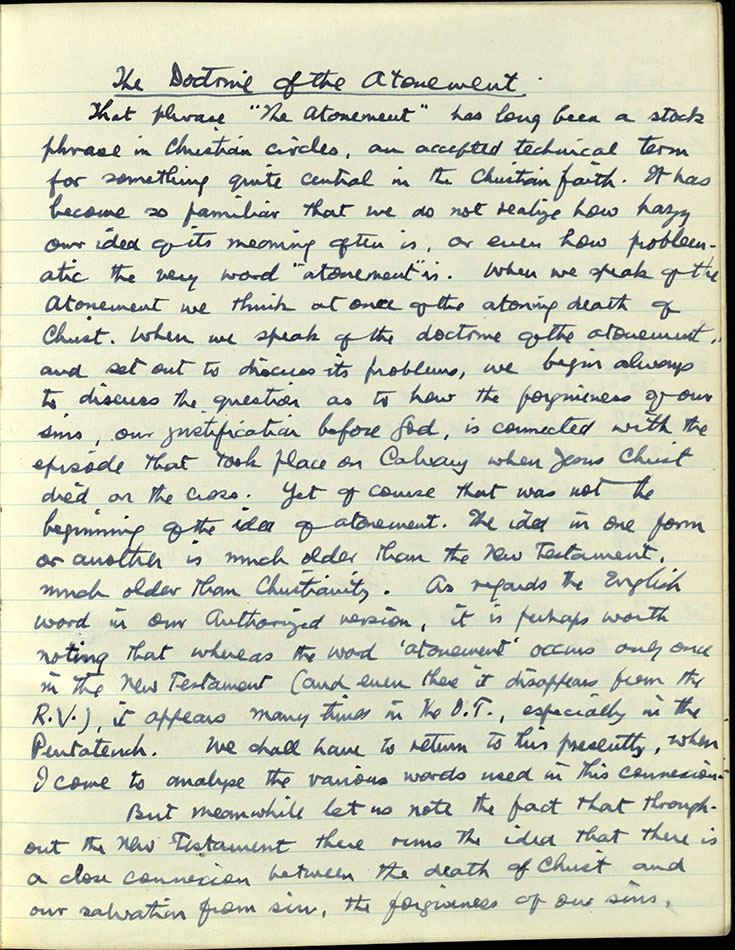 The Doctrine of the Atonement.
That phrase "The Atonement" has long been a stock
phrase in Christian circles, an accepted technical term
for something quite central in the Christian faith. It has
become so familiar that we do not realize how hazy
our idea of its meaning often is, or even how problem-
atic the very word "atonement" is. When we speak of the
Atonement we think at once of the atoning death of
Christ. When we speak of the doctrine of the atonement,
and set out to discuss its problems, we begin always
to discuss the question as to how the forgiveness of our
sins, our justification before God, is connected with the
episode that took place on Calvary when Jesus Christ
died on the cross. Yet of course that was not the
beginning of the idea of atonement. The idea in one form
or another is much older than the New Testament,
much older than Christianity. As regards the English
word in our Authorized version, it is perhaps worth
noting that whereas the word 'atonement' occurs only once
in the New Testament (and even there it disappears from the
R.V.), it appears many times in the O.T., especially in the
Pentateuch. We shall have to return to this presently, when
I come to analyse the various words used in this connexion.
But meanwhile let us note the fact that through-
out the New Testament there runs the idea that there is
a close connexion between the death of Christ and
our salvation from sin, the forgiveness of our sins,